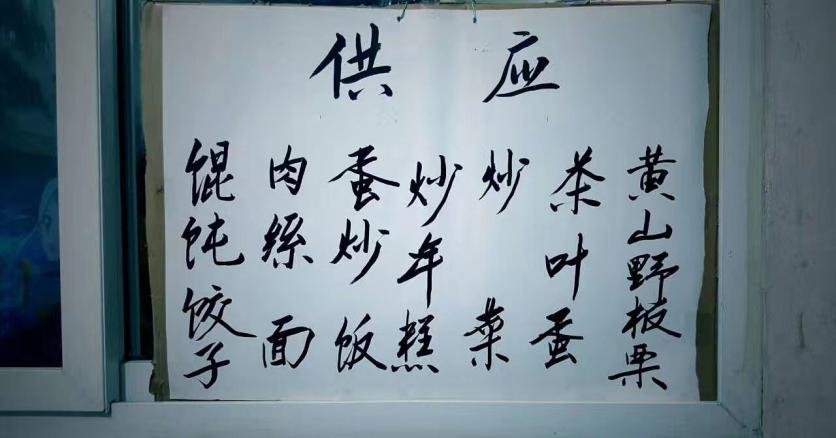 供应
黄山野板栗
茶叶蛋
炒菜
炒年糕
蛋炒饭
肉絲面
馄饨饺子